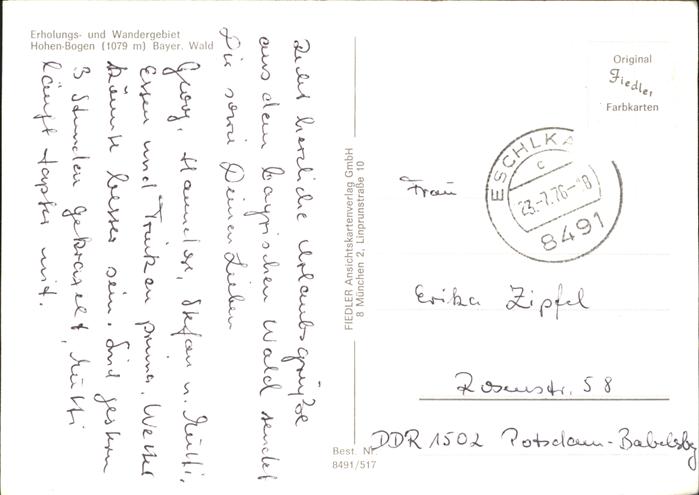 Erholungs- und Wandergebiet
Hohen-Bogen (1079 m) Bayer. Wald
Recht herzliche Urlaubsgrüße
aus dem bayrischen Wald sendet
Dir sowie Deinen Lieben
Georg, Hannelore, Stefan u. Mutti.
Essen und Trinken prima. Wetter
könnte besser sein. Sind gestern
3 Stunden gekraxelt, Mutti
läuft tapfer mit.
FIEDLER Ansichtskartenverlag GmbH
8 München 2, Linprunstraße 10
Best. Nr.
8491/517
Original
Fiedler
Farbkarten
ESCHLKA
c
23.-7.76-18
8491
Frau
Erika Zipfel
Rosenstr. 58
DDR 1502 Potsdam-Babelsbg